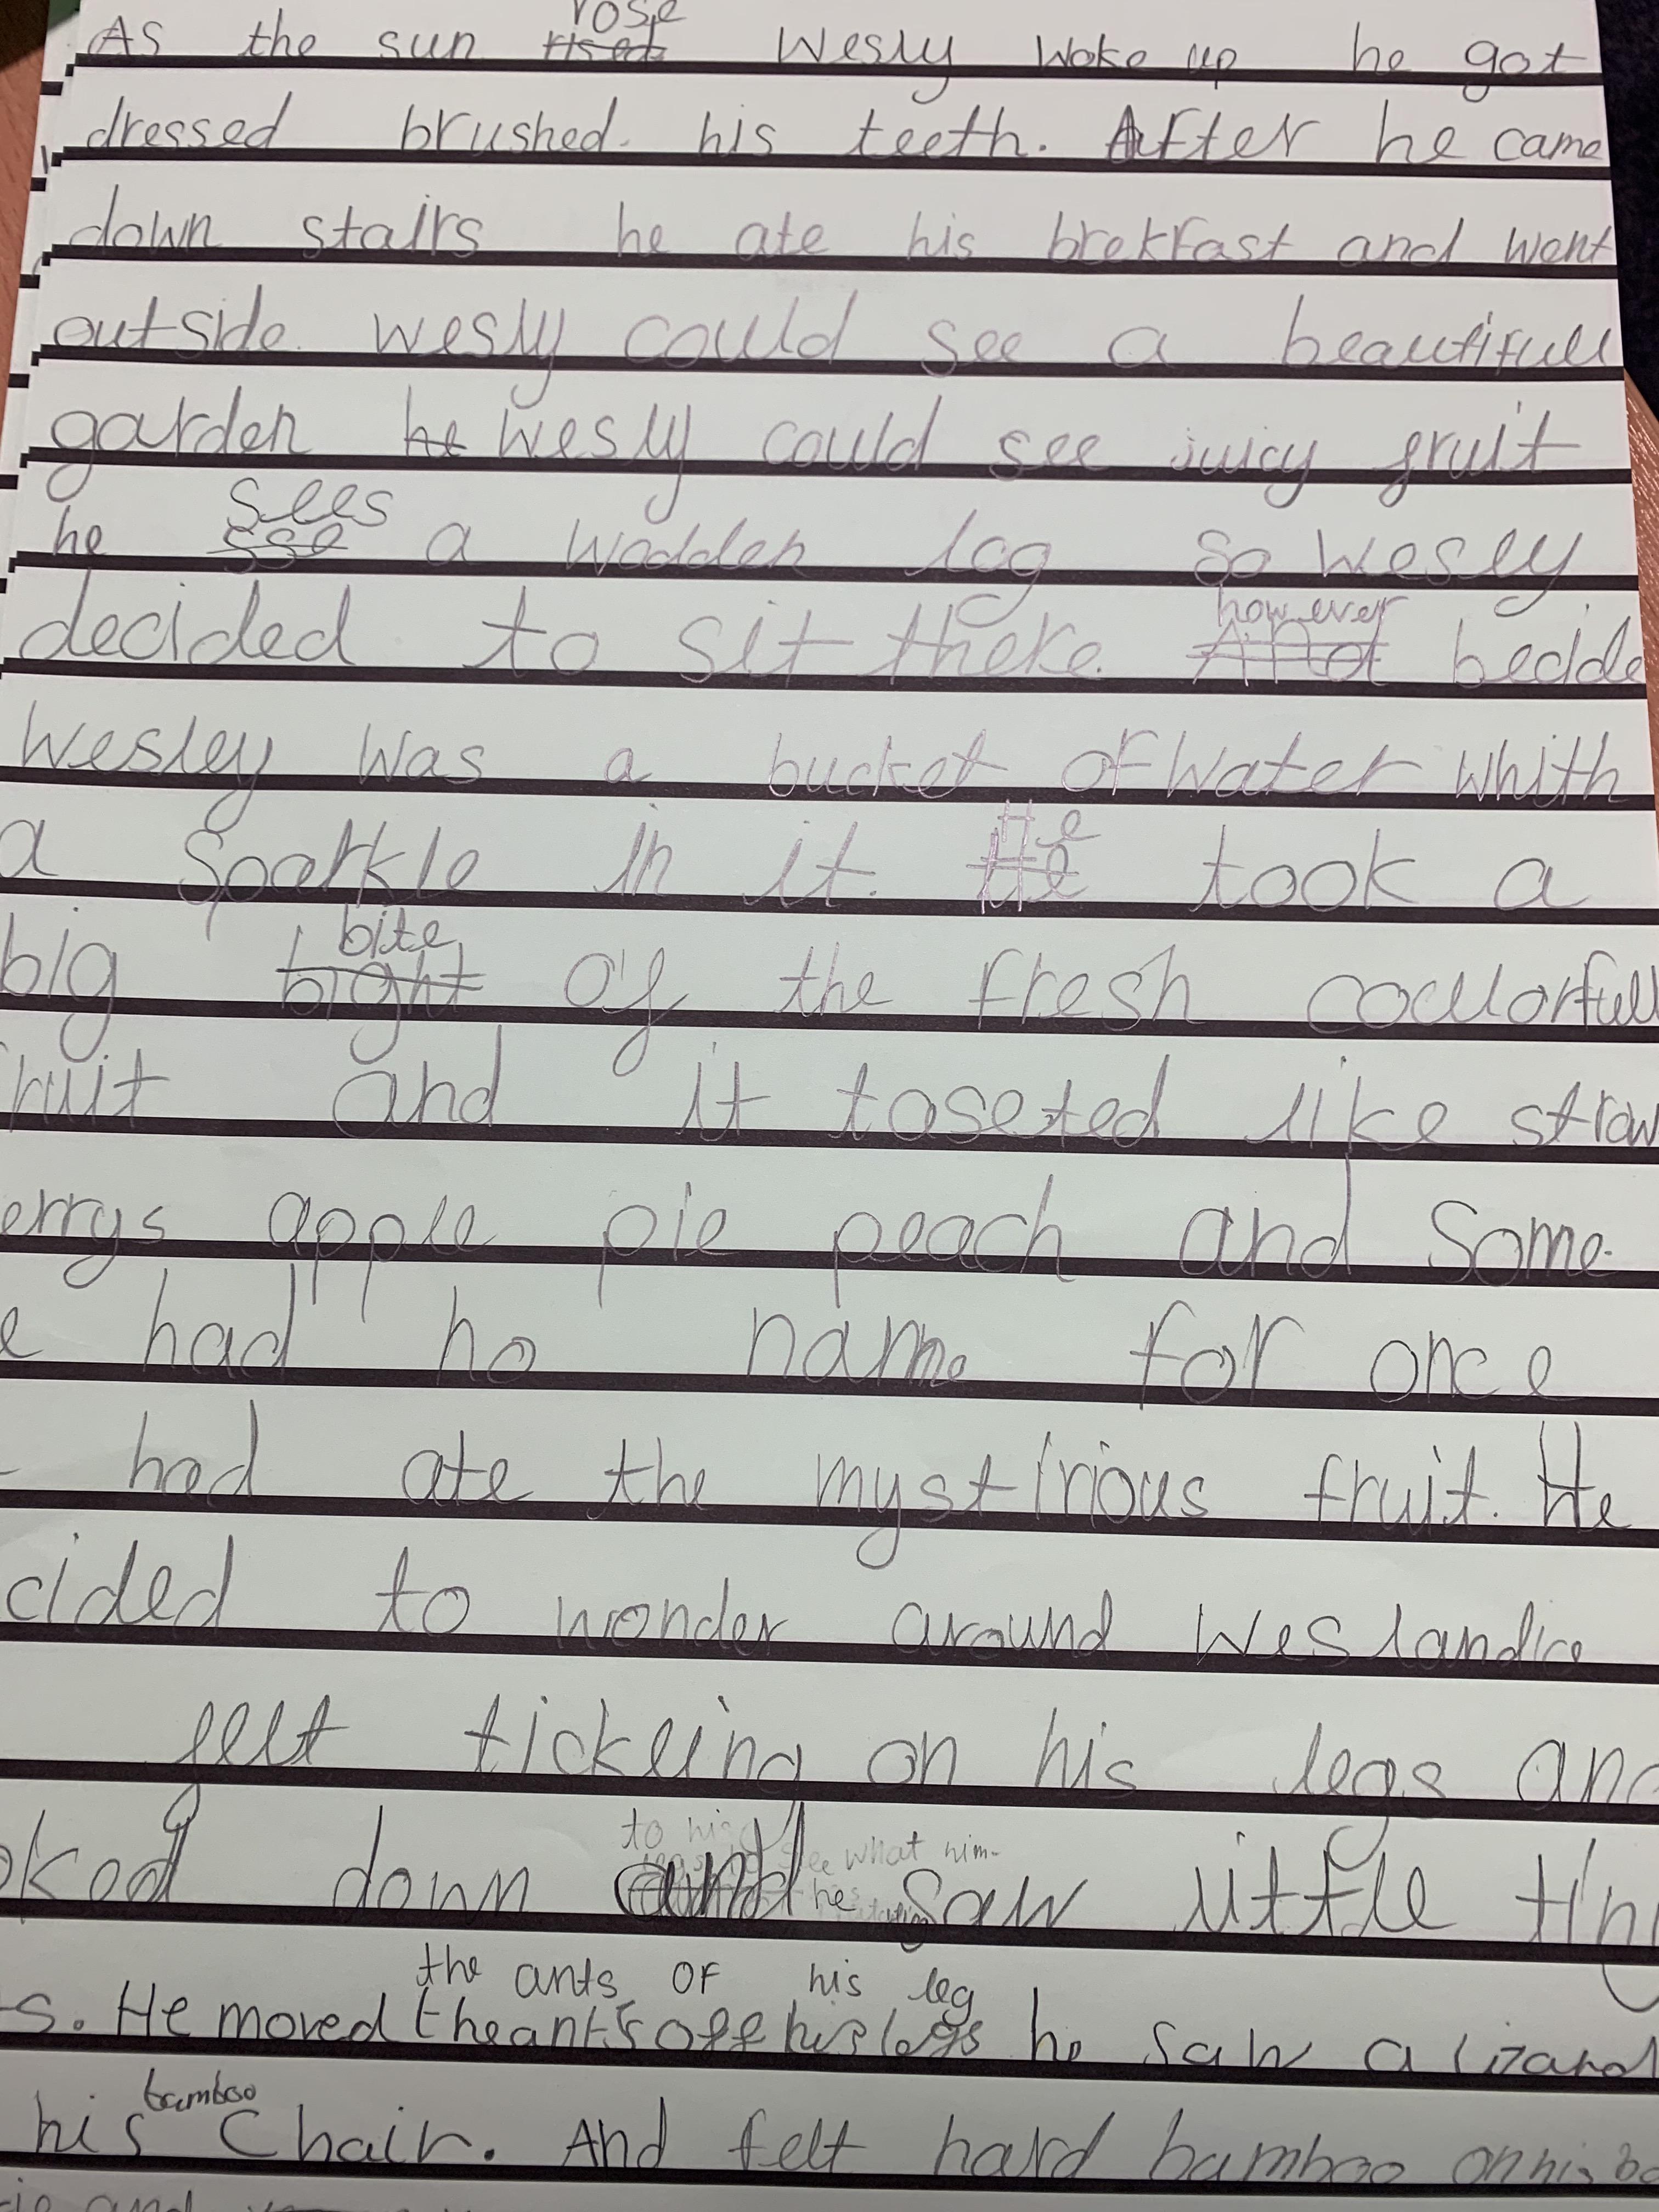 rose
As the sun rised Wesly woke up he got
dressed brushed. his teeth. After he came
down stairs he ate his brekfast and went
outside. wesly could see a beautifull
garden he wesly could see juicy fruit
sees
he sse a wodden log so wesley
however
decided to sit there. And bedide
wesley was a bucket of water whith
He
a sparkle in it. He took a
bite
big bight of the fresh coulorfull
ruit and it toseted like straw
errys apple pie peach and some
e had no name for once
had ate the mystirious fruit. He
cided to wonder around weslandia
felt tickling on his legs and
to his see what him-
oked down and he saw little tiny
the ants of his leg
s. He moved the ants off his legs he saw a lizard
bamboo
his chair. And felt hard bamboo on his ba
and